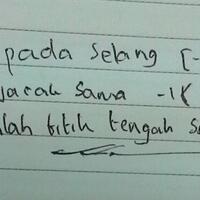 pada selang [-
jarak sama -1 (
lah titik tengah s